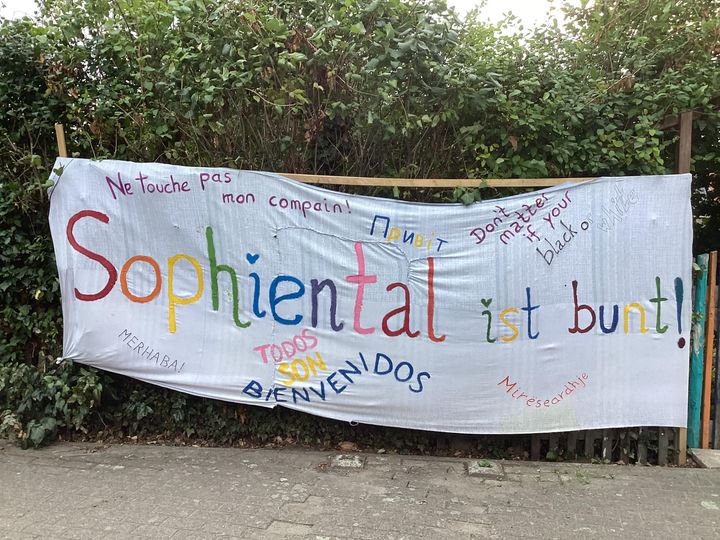 Ne touche pas
mon compain!
Привіт
Don't
matter
if your
black or white
Sophiental ist bunt!
MERHABA!
TODOS
SON
BIENVENIDOS
Mirëseardhje